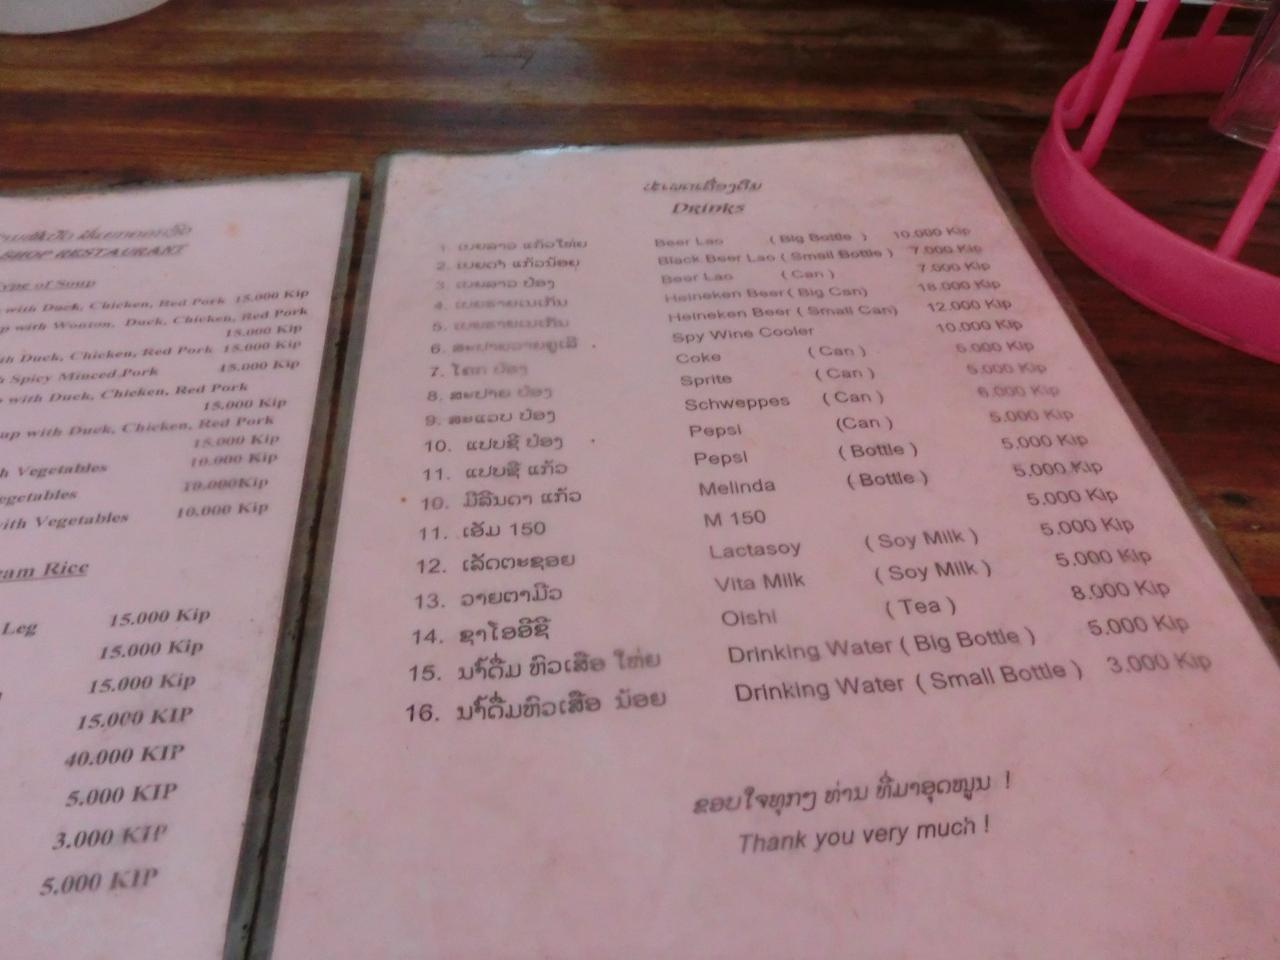 SHOP RESTAURANT
Type of Soup
with Duck, Chicken, Red Pork 15.000 Kip
with Wonton, Duck, Chicken, Red Pork
15.000 Kip
with Duck, Chicken, Red Pork 15.000 Kip
Spicy Minced Pork 15.000 Kip
with Duck, Chicken, Red Pork
15.000 Kip
with Duck, Chicken, Red Pork
15.000 Kip
Vegetables 10.000 Kip
Vegetables 10.000Kip
with Vegetables 10.000 Kip
Rice
Leg 15.000 Kip
15.000 Kip
15.000 Kip
15.000 KIP
40.000 KIP
5.000 KIP
3.000 KIP
5.000 KIP
ປະເພດເຄື່ອງດື່ມ
Drinks
1. ເບຍລາວ ແກ້ວໃຫ່ຍ Beer Lao ( Big Bottle ) 10.000 Kip
2. ເບຍດຳ ແກ້ວນ້ອຍ Black Beer Lao ( Small Bottle ) 7.000 Kip
3. ເບຍລາວ ປ໋ອງ Beer Lao ( Can ) 7.000 Kip
4. ເບຍຮາຍເນເກັນ Heineken Beer ( Big Can) 18.000 Kip
5. ເບຍຮາຍເນເກັນ Heineken Beer ( Small Can) 12.000 Kip
6. ສະປາຍວາຍຄູເລີ Spy Wine Cooler 10.000 Kip
7. ໂຄກ ປ໋ອງ Coke ( Can ) 5.000 Kip
8. ສະປາຍ ປ໋ອງ Sprite ( Can ) 5.000 Kip
9. ສະແວບ ປ໋ອງ Schweppes ( Can ) 6.000 Kip
10. ແປບຊີ ປ໋ອງ Pepsi (Can ) 5.000 Kip
11. ແປບຊີ ແກ້ວ Pepsi ( Bottle ) 5.000 Kip
10. ມີລິນດາ ແກ້ວ Melinda ( Bottle ) 5.000 Kip
11. ເອັມ 150 M 150 5.000 Kip
12. ເລັດຕະຊອຍ Lactasoy ( Soy Milk ) 5.000 Kip
13. ວາຍຕາມີວ Vita Milk ( Soy Milk ) 5.000 Kip
14. ຊາໂອອີຊິ Oishi ( Tea ) 8.000 Kip
15. ນ້ຳດື່ມ ຫົວເສືອ ໃຫ່ຍ Drinking Water ( Big Bottle ) 5.000 Kip
16. ນ້ຳດື່ມຫົວເສືອ ນ້ອຍ Drinking Water ( Small Bottle ) 3.000 Kip
ຂອບໃຈທຸກໆ ທ່ານ ທີ່ມາອຸດໜູນ !
Thank you very much !